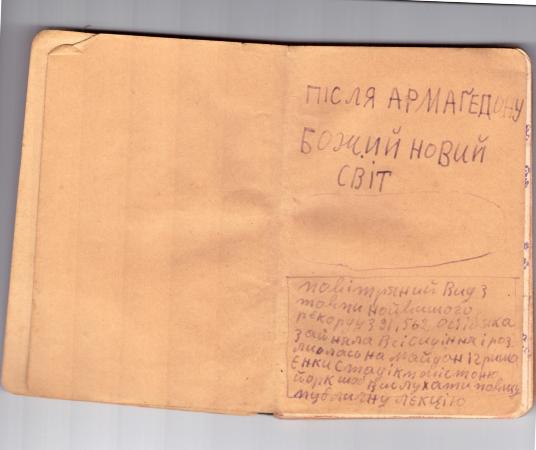 ПІСЛЯ АРМАҐЕДОНУ
БОЖИЙ НОВИЙ
СВІТ
повітряний Вид з
товпи найвищого
рекорду з 91,562 осіб яка
зайняла Всі сидіння і роз
лилась на майдан і
Енки Стадік в місті ню
йорк щоб Вислухати
публичну лекцію